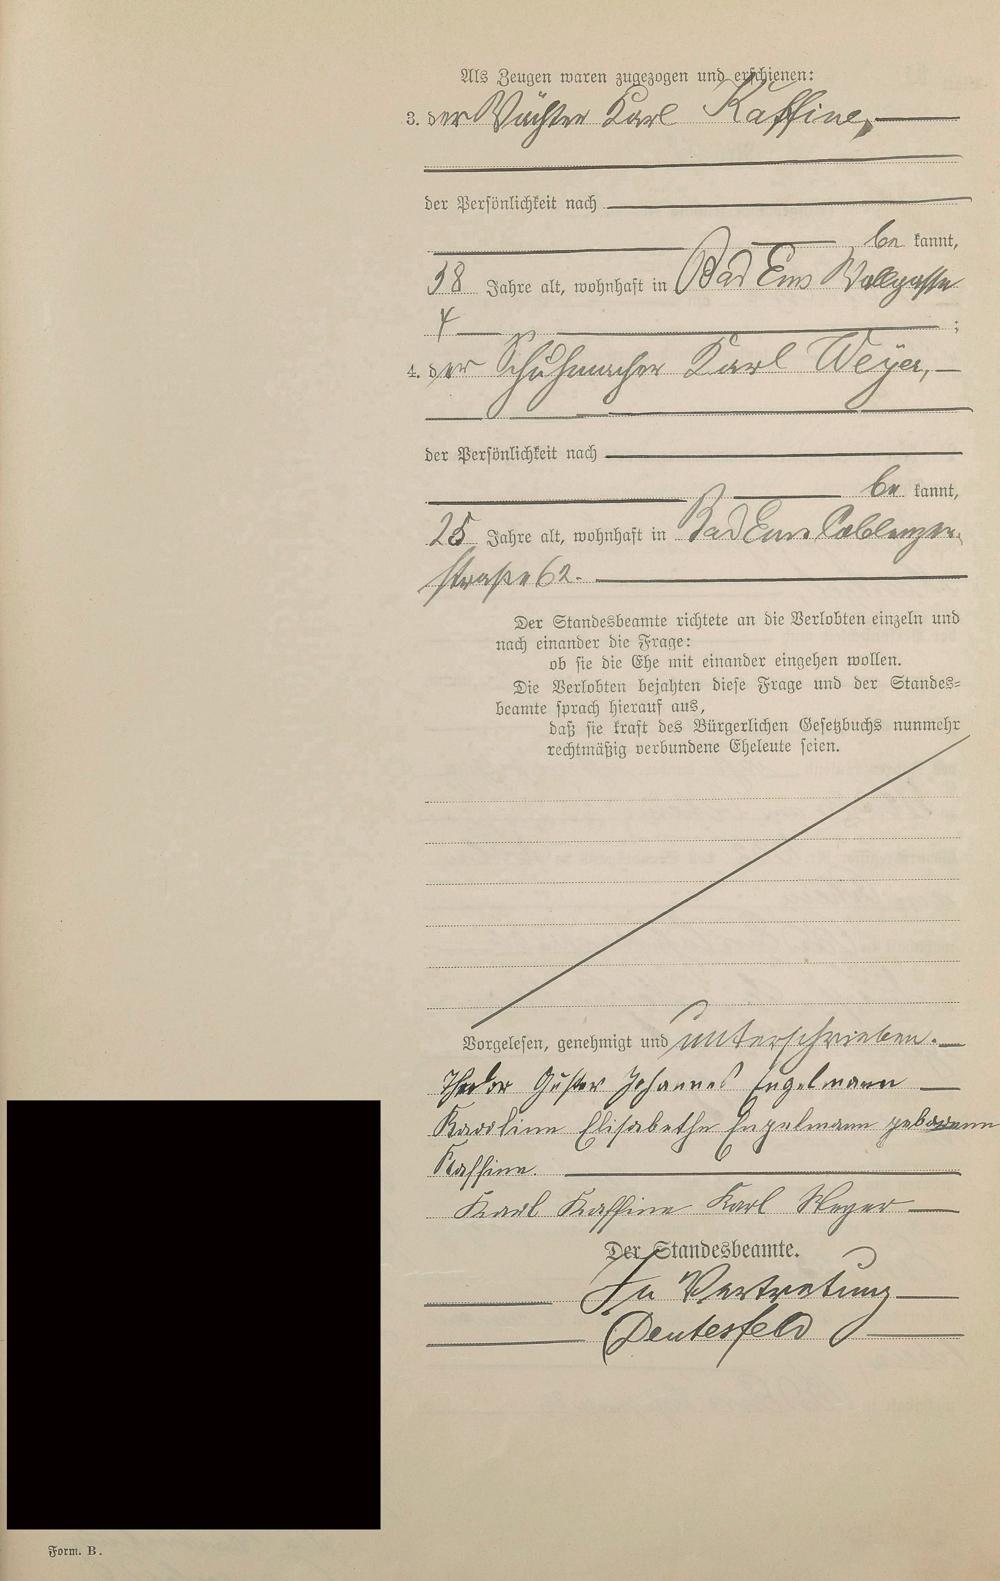 Als Zeugen waren zugezogen und erschienen:
3. der Wächter Karl Kaffine,
der Persönlichkeit nach
be kannt,
58 Jahre alt, wohnhaft in Bad Ems Wallgasse
4 ;
4. der Schuhmacher Karl Weyer,
der Persönlichkeit nach
be kannt,
25 Jahre alt, wohnhaft in Bad Ems Coblenzer-
straße 62.
Der Standesbeamte richtete an die Verlobten einzeln und
nach einander die Frage:
ob sie die Ehe mit einander eingehen wollen.
Die Verlobten bejahten diese Frage und der Standes=
beamte sprach hierauf aus,
daß sie kraft des Bürgerlichen Gesetzbuchs nunmehr
rechtmäßig verbundene Eheleute seien.
Vorgelesen, genehmigt und unterschrieben.
Theodor Gustav Johannes Engelmann
Karoline Elisabethe Engelmann geborene
Kaffine.
Karl Kaffine Karl Weyer
Der Standesbeamte.
In Vertretung
Deutesfeld
Form. B.